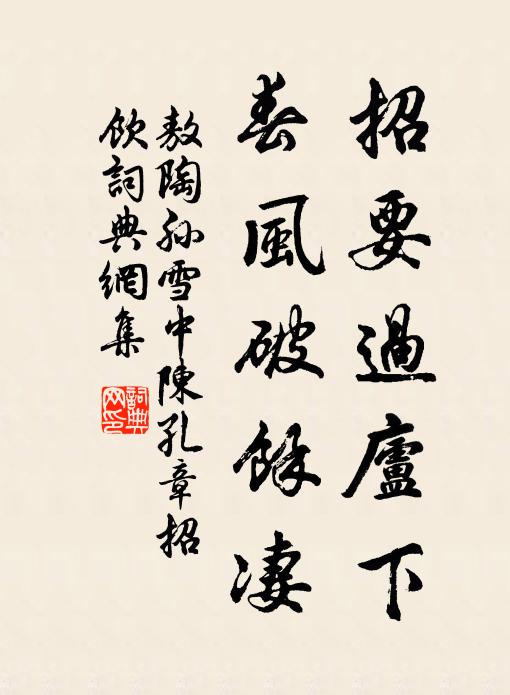 招要過廬下
春風破餘凄
敖陶孙雪中陳孔章招
飲詞典網集
詞典
网印